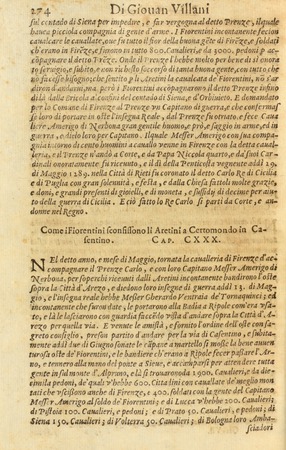 274 Di Giouan Villani
sul contado di Siena per impedire, e far vergogna al detto Prenze, il quale
hauea piccola compagnia di gente d'arme. I Fiorentini incontanente feciono
caualcare le caualllate, oue fu tutto il fior della buona gente di Firenze, e soldati
ch'erano in Firenze, e furono in tutto 800. Caualieri, e da 3000. pedoni p ac-
cōpagnare il detto Prenze. Onde il Prenze l'hebbe molto per bene di sì onora
to seruigio, e subito, e non richiesto soccorso di tanta buona gente, con tutto che
no fusse bisogno, che sentito p li Aretini la caualcata de' Fiorentini, nō s'ar-
dirono d'andarui, ma però i Fiorentini accompagnarono il detto Prenze infino
di là dalla bricola a confini del contado di Siena, e d'Orbiueto. E domandato
per lo Comune di Firenze al Prenze vn Capitano di guerra, e che confermas
se loro di portare in oste l'insegna Reale, dal Prenze fu otriato, e fece Caua
liere, Amerigo di Nerbona gran gentile huomo, e prò, e saggio in arme, et in
guerra, e diello loro per Capitano. Il quale Messer Amerigo con sua compa-
gnia intorno di cento huomini a cauallo venne in Firenze con la detta caualle-
ria, et il Prenze n'andò a Corte, e da Papa Niccola quarto, e da suoi Car-
dinali onoratamente fu riceuuto, e il dì della Penticosta vegnente addì 29.
di Maggio 1289. nella Città di Rieti fu coronato il detto Carlo Re di Cicilia
e di Puglia con gran solennità, e festa, e dalla Chiesa fattoli molte grazie,
e doni, e grandi presenti di gioielli, e di moneta, e sussidij di decime per aiu-
to della guerra di Cicilia. E ciò fatto lo Re Carlo si partì da Corte, e an-
donne nel Regno.
Come i Fiorentini sconfissono li Aretini a Certomondo in Ca-
sentino. CAP. CXXX.
NEl detto anno, e mese di Maggio, tornata la caualleria di Firenze d'ac-
compagnare il Prenze Carlo, e con loro Capitano Messer Amerigo di
Nerbona, per soperchi riceuuti dalli Aretini incontanente bandirono l'oste
sopra la Città d'Arezo, e diedono loro insegne di guerra addì 13. di Mag-
gio, e l'insegna reale hebbe Messer Gherardo Ventraia de' Tornaquinci; ed
incontanente che furon date, le portarono alla Badia a Ripole com'era vsa-
to, e là le lasciarono con guardia faccēdo vista d'andare sopra la Città d'A-
rezo per quella via. E venute le amistà, e fornito l'ordine dell'oste con se-
greto consiglio, preson partito d'andare per la via di Casentino, e subita-
mente addì due di Giugno sonate le cāpane a martello si mosse la bene auuen
turosa oste de' Fiorentini, e le bandiere ch'erano a Ripole fecer passare l'Ar-
no, e tennero alla mena del ponte a Sieue, e accamparsi per attendere tutta
gente in sul monte d'Alpruno, e là si trouarono da 1900. Caualieri, e da die-
cimila pedoni, de' quali v'hebbe 600. Cittadini con caualllate de' meglio mon-
tati che vscissono anche di Firenze, e 400. soldati con la compagnia di Capitano
Messer Amerigo al soldo de' Fiorentini; e di Lucca v'hebbe 200. Caualieri;
di Pistoia 100. Caualieri, e pedoni; e di Prato 50. Caualieri, e pedoni; di
Siena 150. Caualieri; di Volterra 50. Caualieri; di Bologna loro Amba-
sciadori